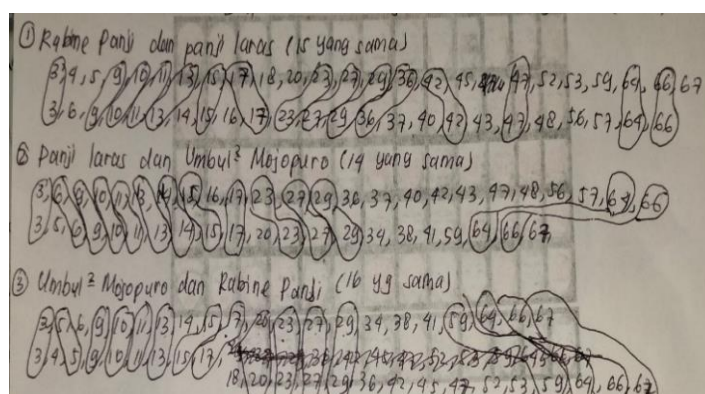 ① Rabine Panji dan panji laras (15 yang sama)
3, 4, 5, 9, 10, 11, 13, 15, 17, 18, 20, 23, 27, 29, 36, 42, 45, 47, 52, 53, 59, 64, 66, 67
3, 6, 9, 10, 11, 13, 14, 15, 16, 17, 23, 27, 29, 36, 37, 40, 42, 43, 47, 48, 56, 57, 64, 66
② Panji laras dan Umbul² Mojopuro (14 yang sama)
3, 6, 9, 10, 11, 13, 14, 15, 16, 17, 23, 27, 29, 36, 37, 40, 42, 43, 47, 48, 56, 57, 64, 66
3, 5, 6, 9, 10, 11, 13, 14, 15, 17, 20, 23, 27, 29, 34, 38, 41, 59, 64, 66, 67,
③ Umbul² Mojopuro dan Rabine Panji (16 yg sama)
3, 5, 6, 9, 10, 11, 13, 14, 15, 17, 20, 23, 27, 29, 34, 38, 41, 59, 64, 66, 67
3, 4, 5, 9, 10, 11, 13, 15, 17,
18, 20, 23, 27, 29, 36, 42, 45, 47, 52, 53, 59, 64, 66, 67